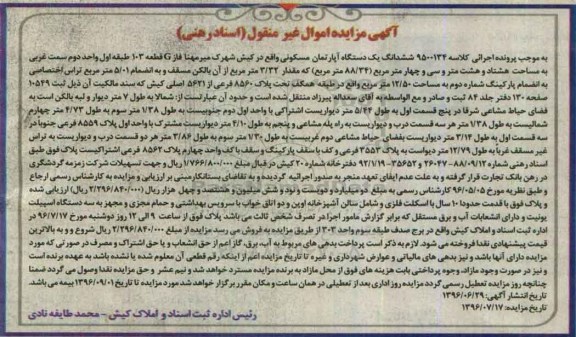 آگهی مزایده اموال غیر منقول (اسناد رهنی)
به موجب پرونده اجرائی کلاسه ۹۵۰۰۱۳۴ ششدانگ یک دستگاه آپارتمان مسکونی واقع در کیش شهرک میرمهنا فاز G قطعه ۱۰۳ طبقه اول واحد دوم سمت غربی
به مساحت هشتاد و هشت متر و سی و چهار صدم متر مربع (۸۸/۳۴ متر مربع) که مقدار ۳/۳۲ متر مربع از آن بالکن مسقف و به انضمام ۵/۰۱ متر مربع تراس اختصاصی
به انضمام پارکینگ شماره دوم به مساحت ۱۲/۵۰ متر مربع واقع در طبقه همکف تحت پلاک ۸۵۶۰ فرعی از ۵۶۲۱ اصلی کیش که سند مالکیت آن ذیل ثبت ۱۰۵۴۹
صفحه ۱۳۰ دفتر جلد ۸۴ ثبت و صادر و مع الواسطه به آقای سعداله پیرزاد منتقل شده است و حدود آن عبارتست از: شمالا به طول ۷ متر دیوار و لبه بالکن است به
فضای حیاط مشاعی شرقا در پنج قسمت اول به طول ۵/۴۴ متر دیواریست اشتراکی با واحد اول دوم جنوبیست به طول ۱/۳۸ متر سوم به طول ۴/۷۳ متر چهارم
شمالیست به طول ۱/۳۸ متر هر سه قسمت درب و دیواریست به راه پله مشاعی و پنجم به طول ۴/۱۰ متر دیواریست مشترک با واحد اول پلاک ۸۵۵۹ فرعی جنوبا در
سه قسمت اول به طول ۳/۱۴ متر دیواریست بفضای حیاط مشاعی دوم غربیست به طول ۱/۳۰ متر سوم به طول ۳/۸۶ متر هر دو قسمت درب و دیواریست به تراس
غیر مسقف غربا به طول ۱۲/۷۹ متر دیواریست به پلاک ۳۵۵۳ فرعی و کف با سقف پارکینگ و سقف با کف واحد چهارم پلاک ۸۵۶۲ فرعی اشتراکیست پلاک فوق طبق
اسناد رهنی شماره ۸۸/۰۹/۱۲-۲۶۰۴۷ و ۳۵۶۵۲-۹۲/۱/۱۹ دفترخانه شماره ۲۰ کیش در قبال مبلغ ۱/۷۶۶/۸۰۰/۰۰۰ ریال و جهت تسهیلات شرکت زمزمه گردشگری
در رهن بانک تجارت قرار گرفته و به علت عدم ایفای تعهد منجر به صدور اجرائیه گردیده و به تقاضای بستانکار مبنی بر ارزیابی و مزایده به کارشناس رسمی ارجاع
و طبق نظریه مورخ ۹۶/۰۵/۰۵ کارشناس رسمی به مبلغ دو میلیارد و دویست و نود و شش میلیون و هشتصد و چهل هزار ریال (۲/۲۹۶/۸۴۰/۰۰۰ ریال) ارزیابی شده
و پلاک فوق با قدمت حدودا ۱۰ سال با اسکلت فلزی و شامل سالن آشپزخانه اوپن و دو اتاق خواب با سرویس بهداشتی و حمام مجزی و مجهز به سه دستگاه اسپیلت
یونیت و دارای انشعابات آب و برق مستقل که برابر گزارش مامور اجرا در تصرف شخص ثالث می باشد پلاک فوق از ساعت ۹ الی ۱۲ روز دوشنبه مورخ ۹۶/۷/۱۷ در
اداره ثبت اسناد و املاک کیش واقع در برج صدف طبقه سوم واحد ۳۰۳ از طریق مزایده به فروش می رسد مزایده از مبلغ ۲/۲۹۶/۸۴۰/۰۰۰ ریال شروع و به بالاترین
قیمت پیشنهادی نقدا فروخته می شود. لازم به ذکر است پرداخت بدهی های مربوط به آب، برق، گاز اعم از حق انشعاب و یا حق اشتراک و مصرف در صورتی که مورد
مزایده دارای آنها باشد و نیز بدهی های مالیاتی و عوارض شهرداری و غیره تا تاریخ مزایده اعم از اینکه رقم قطعی آن معلوم شده یا نشده باشد به عهده برنده است
و نیز در صورت وجود مازاد، وجوه پرداختی بابت هزینه های فوق از محل مازاد به برنده مزایده مسترد خواهد شد و نیم عشر و حق مزایده نقدا وصول می گردد ضمنا
چنانچه روز مزایده تعطیل رسمی گردد مزایده روز اداری بعد از تعطیلی در همان ساعت و مکان مقرر برگزار خواهد شد مورد مزایده تا تاریخ ۱۳۹۶/۰۹/۰۱ بیمه می باشد.
تاریخ انتشار آگهی: ۱۳۹۶/۰۶/۲۹
تاریخ مزایده: ۱۳۹۶/۰۷/۱۷
رئیس اداره ثبت اسناد و املاک کیش - محمد طایفه نادی